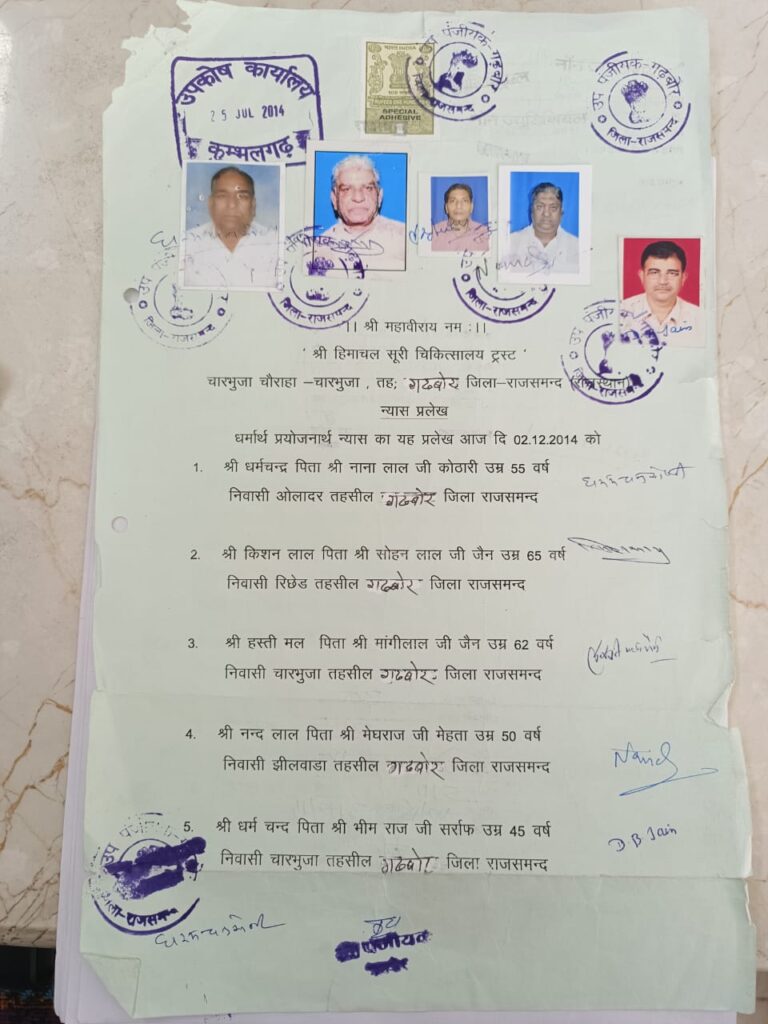 उपकोष कार्यालय
25 JUL 2014
कुम्भलगढ़
SPECIAL
ADHESIVE
उप पंजीयक-गढ़बोर
जिला-राजसमन्द
उप पंजीयक-गढ़बोर
जिला-राजसमन्द
जिला-राजसमन्द
जिला-राजसमन्द
जिला-राजसमन्द
Nand
Jain
।। श्री महावीराय नम :।।
' श्री हिमाचल सूरी चिकित्सालय ट्रस्ट '
चारभुजा चौराहा –चारभुजा , तह; गढबोर जिला–राजसमन्द (राजस्थान)
न्यास प्रलेख
धर्मार्थ प्रयोजनार्थ न्यास का यह प्रलेख आज दि 02.12.2014 को
1. श्री धर्मचन्द्र पिता श्री नाना लाल जी कोठारी उम्र 55 वर्ष
निवासी ओलादर तहसील गढबोर जिला राजसमन्द
2. श्री किशन लाल पिता श्री सोहन लाल जी जैन उम्र 65 वर्ष
निवासी रिछेड तहसील गढबोर जिला राजसमन्द
3. श्री हस्ती मल पिता श्री मांगीलाल जी जैन उम्र 62 वर्ष
निवासी चारभुजा तहसील गढबोर जिला राजसमन्द
4. श्री नन्द लाल पिता श्री मेघराज जी मेहता उम्र 50 वर्ष
निवासी झीलवाडा तहसील गढबोर जिला राजसमन्द
Nand
5. श्री धर्म चन्द पिता श्री भीम राज जी सर्राफ उम्र 45 वर्ष
D B Jain
निवासी चारभुजा तहसील गढबोर जिला राजसमन्द
उप पंजीयक
जिला-राजसमन्द
उप
पंजीयक